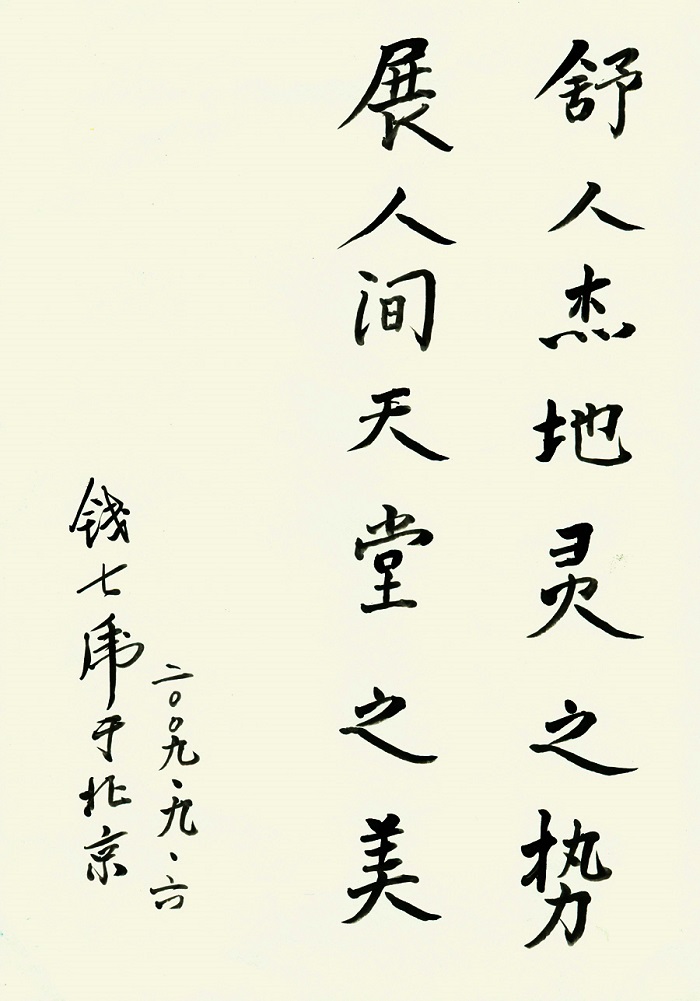 舒人杰地灵之势
展人间天堂之美
二〇〇九、九、六
钱七虎于北京